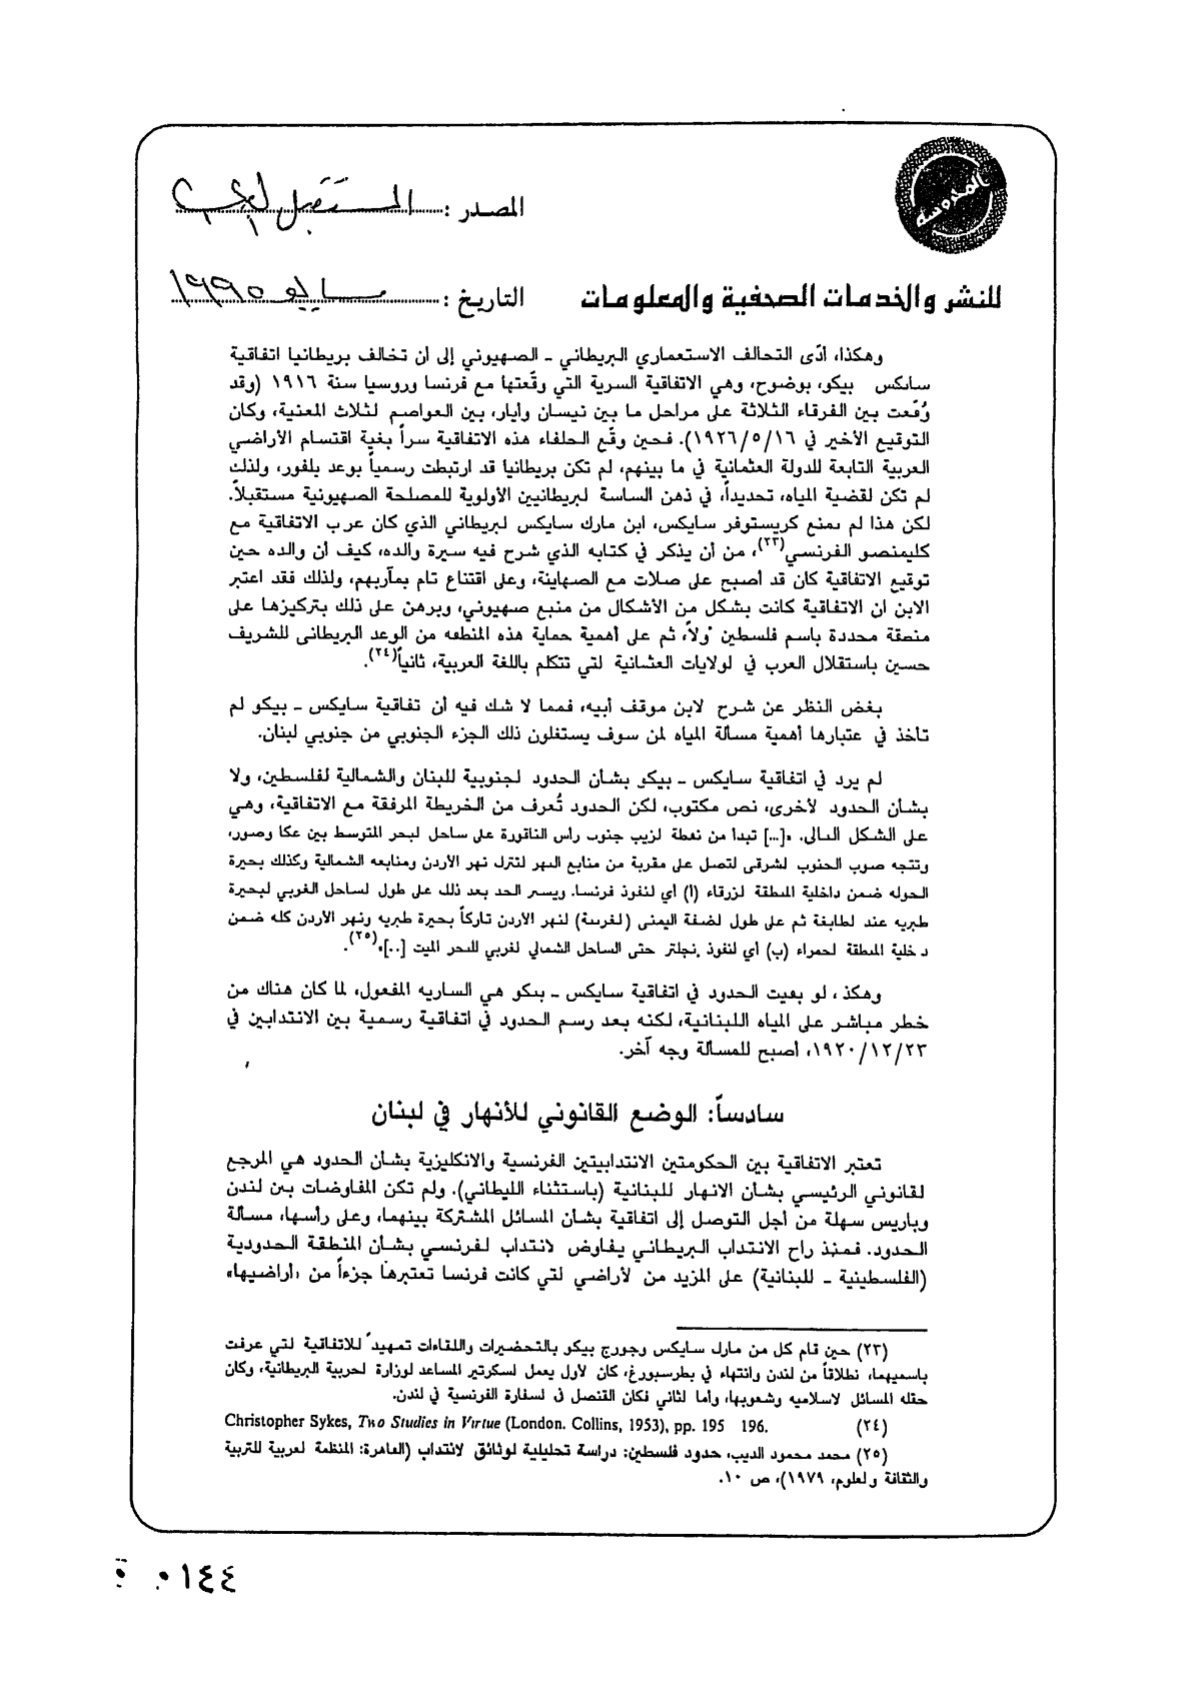 المدوسة
المصدر : المستقبل العربي
للنشر والخدمات الصحفية والمعلومات
التاريخ : مايو ١٩٩٥
وهكذا، أدّى التحالف الاستعماري البريطاني ـ الصهيوني إلى أن تخالف بريطانيا اتفاقية
سايكس بيكو، بوضوح، وهي الاتفاقية السرية التي وقّعتها مع فرنسا وروسيا سنة ١٩١٦ (وقد
وُقّعت بين الفرقاء الثلاثة على مراحل ما بين نيسان وأيار، بين العواصم لثلاث المعنية، وكان
التوقيع الأخير في ١٩٢٦/٥/١٦). فحين وقّع الحلفاء هذه الاتفاقية سراً بغية اقتسام الأراضي
العربية التابعة للدولة العثمانية في ما بينهم، لم تكن بريطانيا قد ارتبطت رسمياً بوعد بلفور، ولذلك
لم تكن لقضية المياه، تحديداً، في ذهن الساسة لبريطانيين الأولوية للمصلحة الصهيونية مستقبلاً.
لكن هذا لم يمنع كريستوفر سايكس، ابن مارك سايكس لبريطاني الذي كان عرب الاتفاقية مع
كليمنصو الفرنسي(٢٣)، من أن يذكر في كتابه الذي شرح فيه سيرة والده، كيف أن والده حين
توقيع الاتفاقية كان قد أصبح على صلات مع الصهاينة، وعلى اقتناع تام بمآربهم، ولذلك فقد اعتبر
الابن ان الاتفاقية كانت بشكل من الأشكال من منبع صهيوني، وبرهن على ذلك بتركيزها على
منطقة محددة باسم فلسطين ولاً، ثم على أهمية حماية هذه المنطقه من الوعد البريطاني للشريف
حسين باستقلال العرب في لولايات العثمانية لتي تتكلم باللغة العربية، ثانياً(٢٤).
بغض النظر عن شرح لابن موقف أبيه، فمما لا شك فيه أن تفاقية سايكس ـ بيكو لم
تأخذ في عتبارها أهمية مسألة المياه لمن سوف يستغلون ذلك الجزء الجنوبي من جنوبي لبنان.
لم يرد في اتفاقية سايكس ـ بيكو بشأن الحدود لجنوبية للبنان والشمالية لفلسطين، ولا
بشأن الحدود لأخرى، نص مكتوب، لكن الحدود تُعرف من الخريطة المرفقة مع الاتفاقية، وهي
على الشكل التالي. «[...] تبدأ من نقطة لزيب جنوب رأس الناقورة على ساحل لبحر المتوسط بين عكا وصور،
وتتجه صوب الجنوب لشرقي لتصل على مقربة من منابع النهر لتترك نهر الأردن ومنابعه الشمالية وكذلك بحيرة
الحوله ضمن داخلية المنطقة لزرقاء (أ) أي لنفوذ فرنسا. ويسير الحد بعد ذلك على طول لساحل الغربي لبحيرة
طبريه عند لطابغة ثم على طول لضفة اليمنى (لغربية) لنهر الأردن تاركاً بحيرة طبريه ونهر الأردن كله ضمن
د خلية المنطقة لحمراء (ب) أي لنفوذ نجلتر حتى الساحل الشمالي لغربي للبحر الميت [..]»(٢٥).
وهكذ ، لو بقيت الحدود في اتفاقية سايكس ـ بيكو هي الساريه المفعول، لما كان هناك من
خطر مباشر على المياه اللبنانية، لكنه بعد رسم الحدود في اتفاقية رسمية بين الانتدابين في
١٩٢٠/١٢/٢٣، أصبح للمسألة وجه آخر.
سادساً: الوضع القانوني للأنهار في لبنان
تعتبر الاتفاقية بين الحكومتين الانتدابيتين الفرنسية والانكليزية بشأن الحدود هي المرجع
لقانوني الرئيسي بشأن الانهار للبنانية (باستثناء الليطاني). ولم تكن المفاوضات بين لندن
وباريس سهلة من أجل التوصل إلى اتفاقية بشأن المسائل المشتركة بينهما، وعلى رأسها، مسألة
الحدود. فمنذ راح الانتداب البريطاني يفاوض لانتداب لفرنسي بشأن المنطقة الحدودية
(الفلسطينية ـ للبنانية) على المزيد من لأراضي لتي كانت فرنسا تعتبرها جزءاً من «أراضيها»
(٢٣) حين قام كل من مارك سايكس وجورج بيكو بالتحضيرات واللقاءات تمهيد ً للاتفاقية لتي عرفت
باسميهما، نطلاقاً من لندن وانتهاء في بطرسبورغ، كان لأول يعمل لسكرتير المساعد لوزارة لحربية البريطانية، وكان
حقله المسائل لاسلاميه وشعوبها، وأما لثاني فكان القنصل في لسفارة الفرنسية في لندن.
(٢٤) Christopher Sykes, Two Studies in Virtue (London. Collins, 1953), pp. 195 196.
(٢٥) محمد محمود الديب، حدود فلسطين: دراسة تحليلية لوثائق لانتداب (القاهرة: المنظمة لعربية للتربية
والثقافة ولعلوم، ١٩٧٩)، ص ١٠.
٠١٤٤